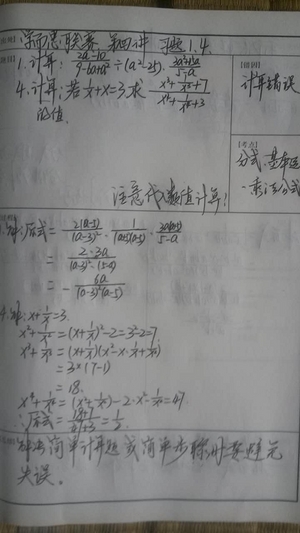 学而思联赛 第四讲 习题1.4.
1.计算: (2a-10)/(9-6a+a²) ÷ (a²-25) · (3a²+15a)/(5-a)
4.计算: 若x+1/x=3,求 (x³+1/x³+7)/(x⁴+1/x⁴+3)
的值.
计算错误
分式.基本运
.乘法公式
注意代入数值计算!
1.解:原式= 2(a-5)/(a-3)² · 1/((a+5)(a-5)) · 3a(a+5)/(5-a)
= 2·3a/((a-3)²·(5-a))
= - 6a/((a-3)²(a-5))
4.解: x+1/x=3.
x²+1/x²=(x+1/x)²-2=3²-2=7
x³+1/x³=(x+1/x)(x²-x·1/x+1/x²)
=3×(7-1)
=18.
x⁴+1/x⁴=(x²+1/x²)²-2·x²·1/x²=47.
∴原式= (18+7)/(47+3) = 1/2.
简单计算题或简单步骤时要避免
失误。